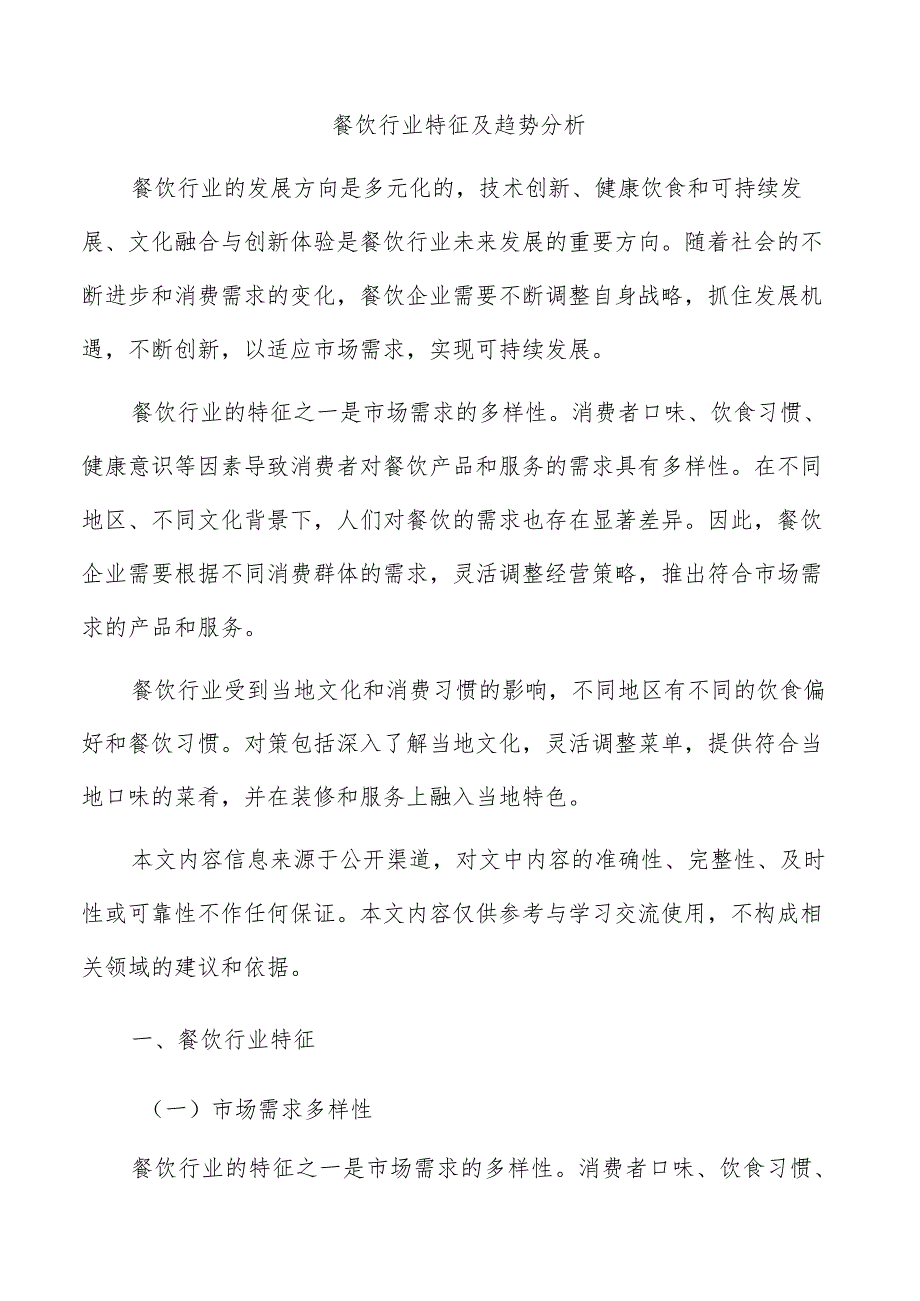 餐饮行业特征及趋势分析
餐饮行业的发展方向是多元化的，技术创新、健康饮食和可持续发
展、文化融合与创新体验是餐饮行业未来发展的重要方向。随着社会的不
断进步和消费需求的变化，餐饮企业需要不断调整自身战略，抓住发展机
遇，不断创新，以适应市场需求，实现可持续发展。
餐饮行业的特征之一是市场需求的多样性。消费者口味、饮食习惯、
健康意识等因素导致消费者对餐饮产品和服务的需求具有多样性。在不同
地区、不同文化背景下，人们对餐饮的需求也存在显著差异。因此，餐饮
企业需要根据不同消费群体的需求，灵活调整经营策略，推出符合市场需
求的产品和服务。
餐饮行业受到当地文化和消费习惯的影响，不同地区有不同的饮食偏
好和餐饮习惯。对策包括深入了解当地文化，灵活调整菜单，提供符合当
地口味的菜肴，并在装修和服务上融入当地特色。
本文内容信息来源于公开渠道，对文中内容的准确性、完整性、及时
性或可靠性不作任何保证。本文内容仅供参考与学习交流使用，不构成相
关领域的建议和依据。
一、餐饮行业特征
（一）市场需求多样性
餐饮行业的特征之一是市场需求的多样性。消费者口味、饮食习惯、